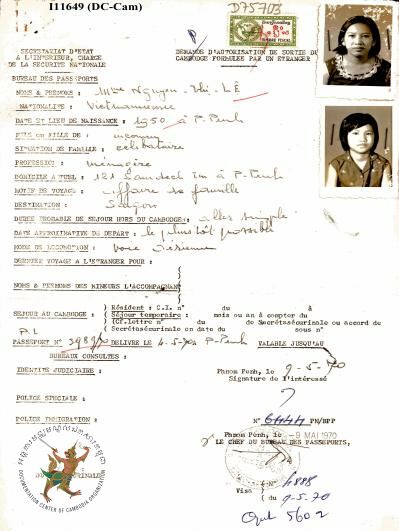 I11649 (DC-Cam)
D75703
SECRETARIAT D'ETAT
A L'INTERIEUR, CHARGE
DE LA SECURITE NATIONALE
DEMANDE D'AUTORISATION DE SORTIE DU
CAMBODGE FORMULEES PAR UN ETRANGER
BUREAU DES PASSEPORTS
NOMS & PRENOMS : Mme Nguyen - thi - LÊ
NATIONALITE : Vietnamienne
DATE ET LIEU DE NAISSANCE : 1950 à P-Penh
FILS ou FILLE DE : inconnu
SITUATION DE FAMILLE : célibataire
PROFESSION : ménagère
DOMICILE ACTUEL : 121 à P-Penh
MOTIF DE VOYAGE : affaire de famille
DESTINATION : Saigon
DUREE PROBABLE DE SEJOUR HORS DU CAMBODGE : aller simple
DATE APPROXIMATIVE DE DEPART : le plus tôt possible
MODE DE LOCOMOTION : voie aérienne
DERNIER VOYAGE A L'ETRANGER POUR :
NOMS & PRENOMS DES MINEURS L'ACCOMPAGNANT
SEJOUR AU CAMBODGE :
Résident : C.I. n° du à
Séjour temporaire : mois ou an à compter du
(Cf.lettre n° du de Secrétaséurinale ou accord de
Secrétaséurinale en date du sous n°
P.L
PASSEPORT N° DELIVRE LE 4-5-70 A P-Penh VALABLE JUSQU'AU
BUREAUX CONSULTES :
IDENTITE JUDICIAIRE :
Phnom Penh, le 9-5-70
Signature de l'intéressé
POLICE SPECIALE :
N° 6444 PN/BPP
POLICE IMMIGRATION :
Phnom Penh, le -8 MAI 1970
LE CHEF DU BUREAU DES PASSEPORTS,
DOCUMENTATION CENTER OF CAMBODIA ORGANIZATION
Visa
n° 4888
du 9.5.70
5602